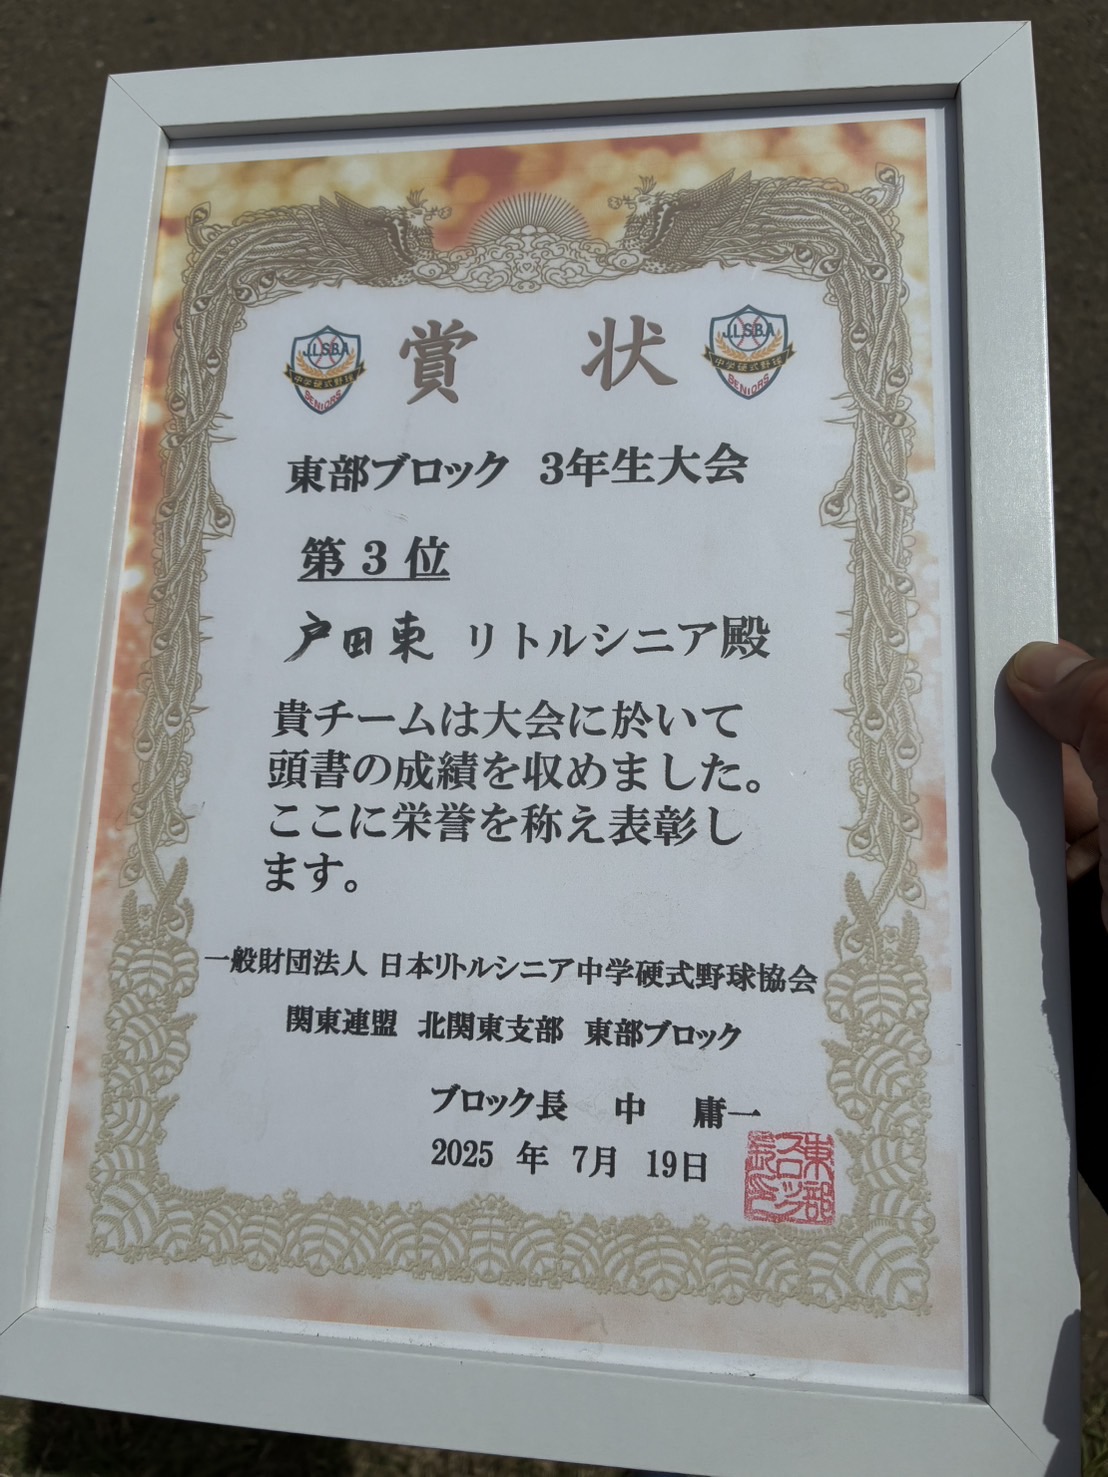 J.L.S.B.A
中学硬式野球
SENIORS
賞 状
J.L.S.B.A
中学硬式野球
SENIORS
東部ブロック 3年生大会
第 3 位
戸田東 リトルシニア殿
貴チームは大会に於いて
頭書の成績を収めました。
ここに栄誉を称え表彰し
ます。
一般財団法人 日本リトルシニア中学硬式野球協会
関東連盟 北関東支部 東部ブロック
ブロック長 中 庸一
2025 年 7月 19日
東部
ブロック
長印